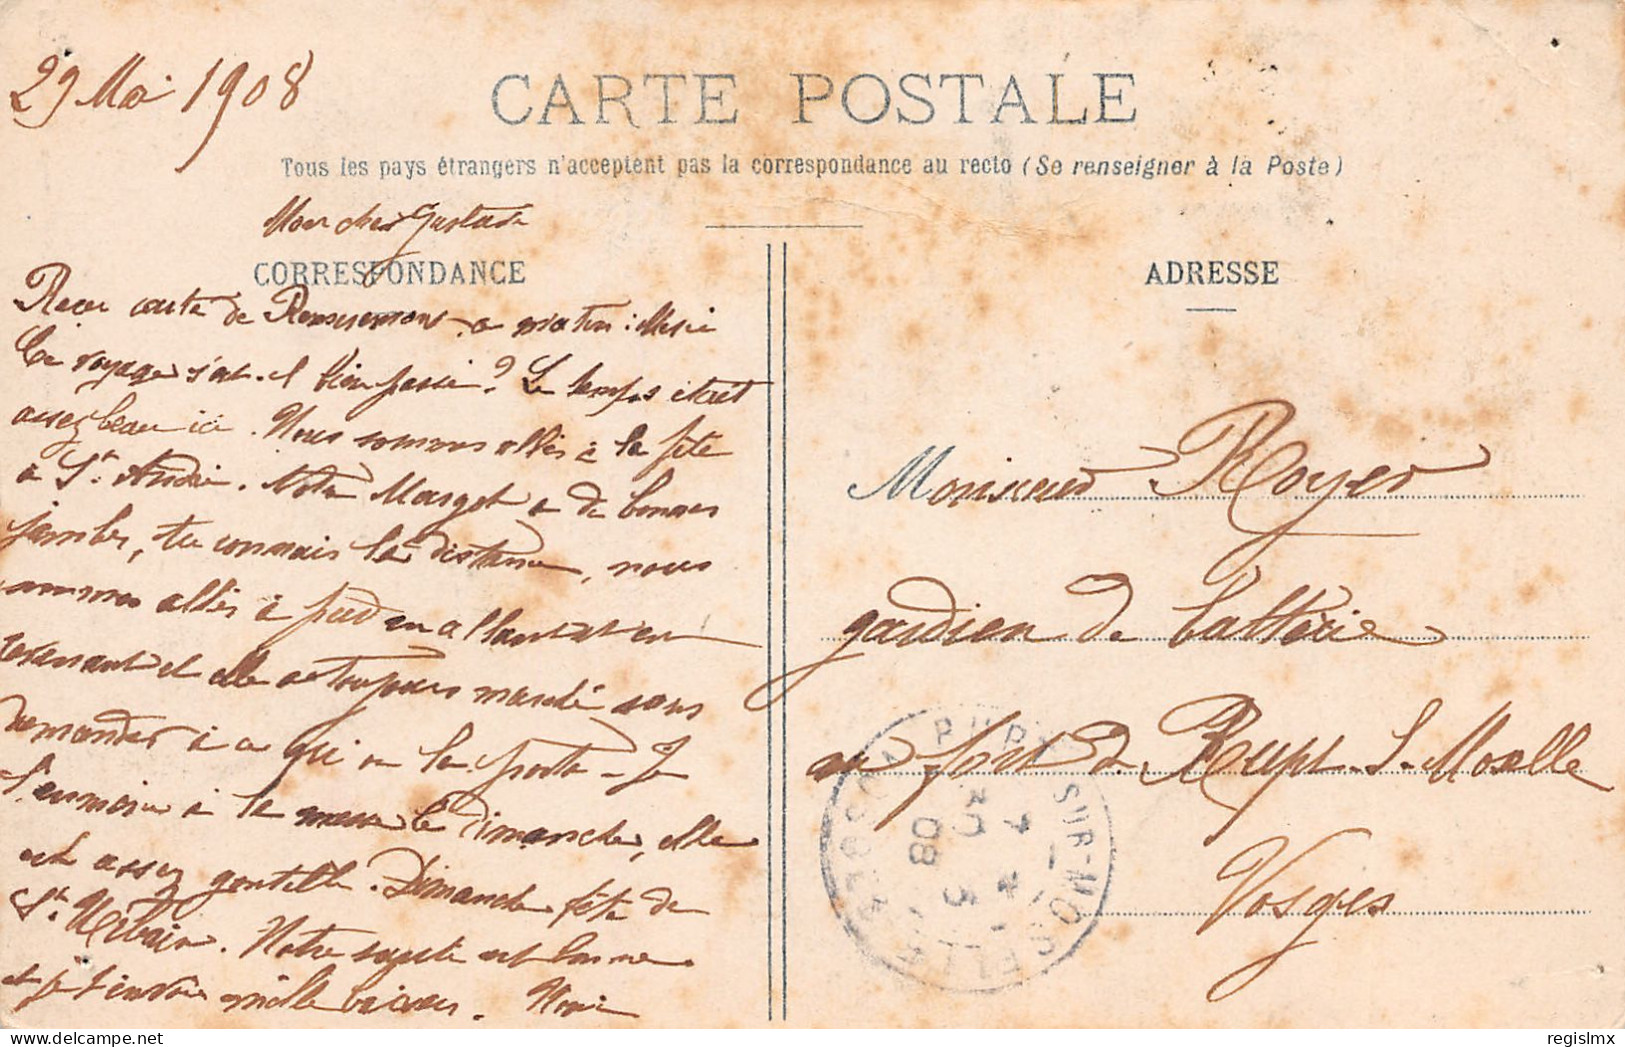 29 Mai 1908
CARTE POSTALE
Tous les pays étrangers n'acceptent pas la correspondance au recto (Se renseigner à la Poste)
Mon cher Gustave
CORRESPONDANCE
ADRESSE
Reçu carte de Remiremont ce matin : Merci
Ce voyage s'est-il bien passé ? Le temps était
assez beau ici. Nous sommes allés à la fête
à St André. Notre Margot a de bonnes
jambes, tu connais la distance, nous
sommes allés à pied en allant et en
revenant et elle a toujours marché sans
demander à ce qu'on la porte - Je
l'emmène à la messe le Dimanche, elle
est assez gentille. Dimanche fête de
St Urbain. Notre santé est bonne
et je t'envoie mille baisers.
Monsieur Royer
gardien de batterie
au fort de Rupt. S. Moselle
Vosges
RUPT-SUR-MOSELLE
30 5
08
VOSGES
regislmx